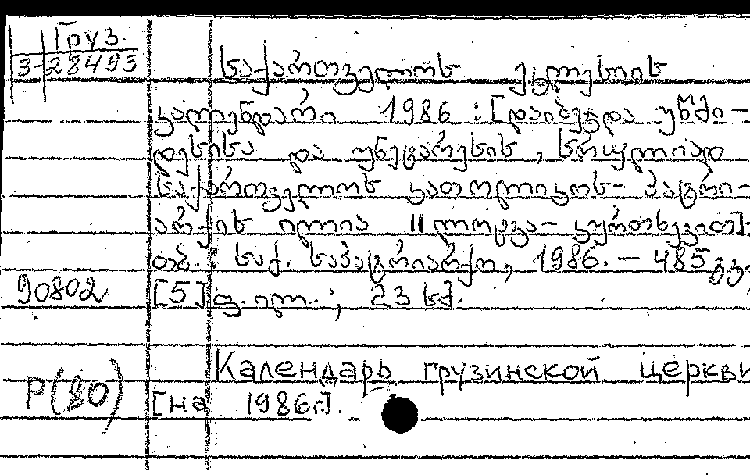 Груз.
3-28493
საქართველოს ეკლესიის
კალენდარი 1986 : [დაიბეჭდა უწმი-
დესისა და უნეტარესის, სრულიად
საქართველოს კათოლიკოს-პატრი-
არქის ილია II ლოცვა-კურთხევით].-
თბ. : საქ. საპატრიარქო, 1986. — 485 გვ.,
90802 [5] ფ. ილ. ; 23 სმ.
Календарь грузинской церкви
P(80) [на 1986г].